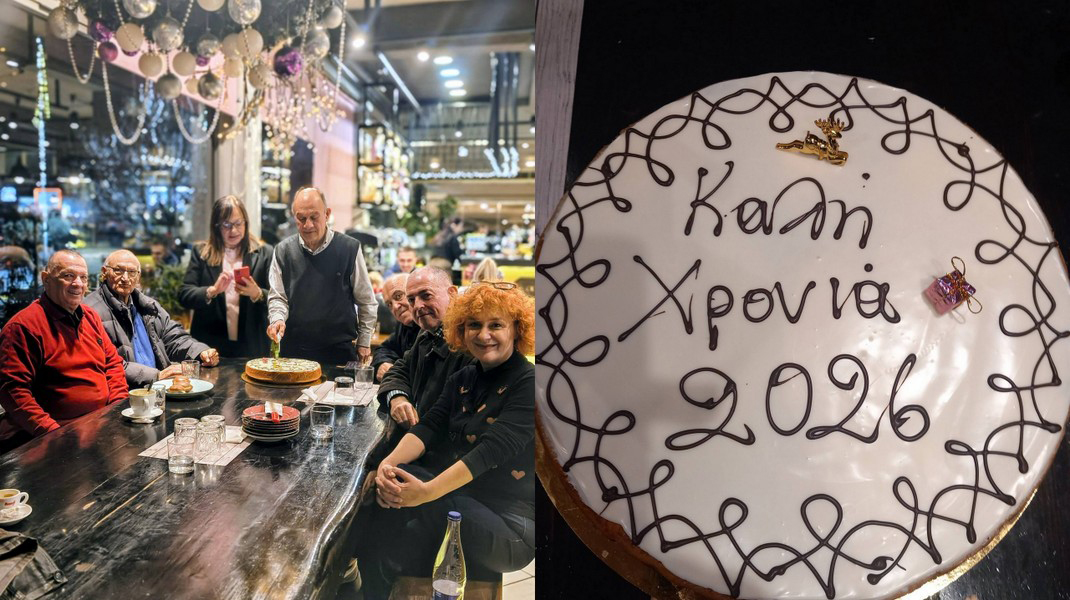 Καλη
Χρονιά
2026